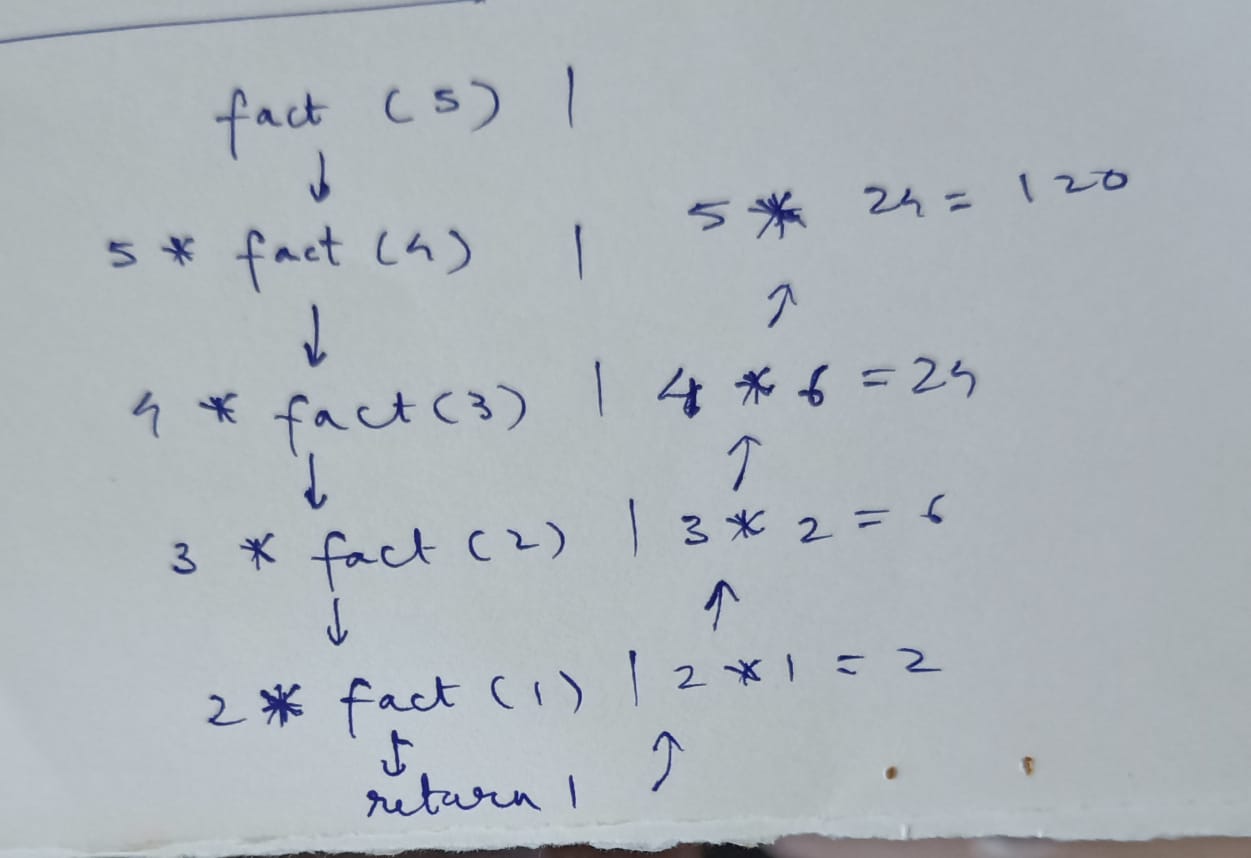 fact (5) |
↓
5 * fact (4) | 5 * 24 = 120
↓ ↑
4 * fact (3) | 4 * 6 = 24
↓ ↑
3 * fact (2) | 3 * 2 = 6
↓ ↑
2 * fact (1) | 2 * 1 = 2
↓ ↑
return 1